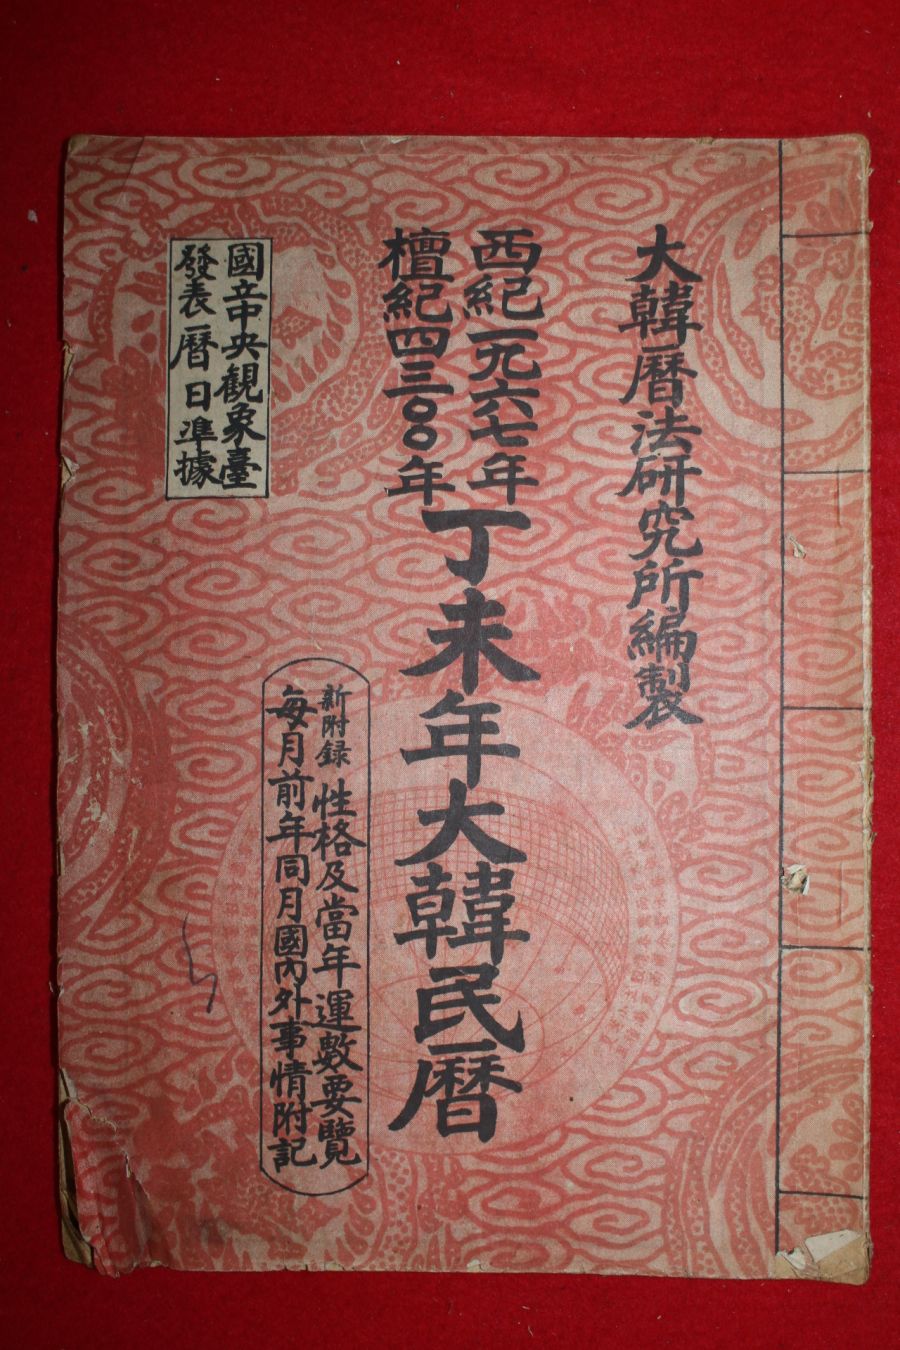 大韓曆法研究所編製
西紀一九六七年
檀紀四三〇〇年
丁未年大韓民曆
國立中央觀象臺
發表曆日準據
新附録 性格及當年運數要覽
每月前年同月國內外事情附記